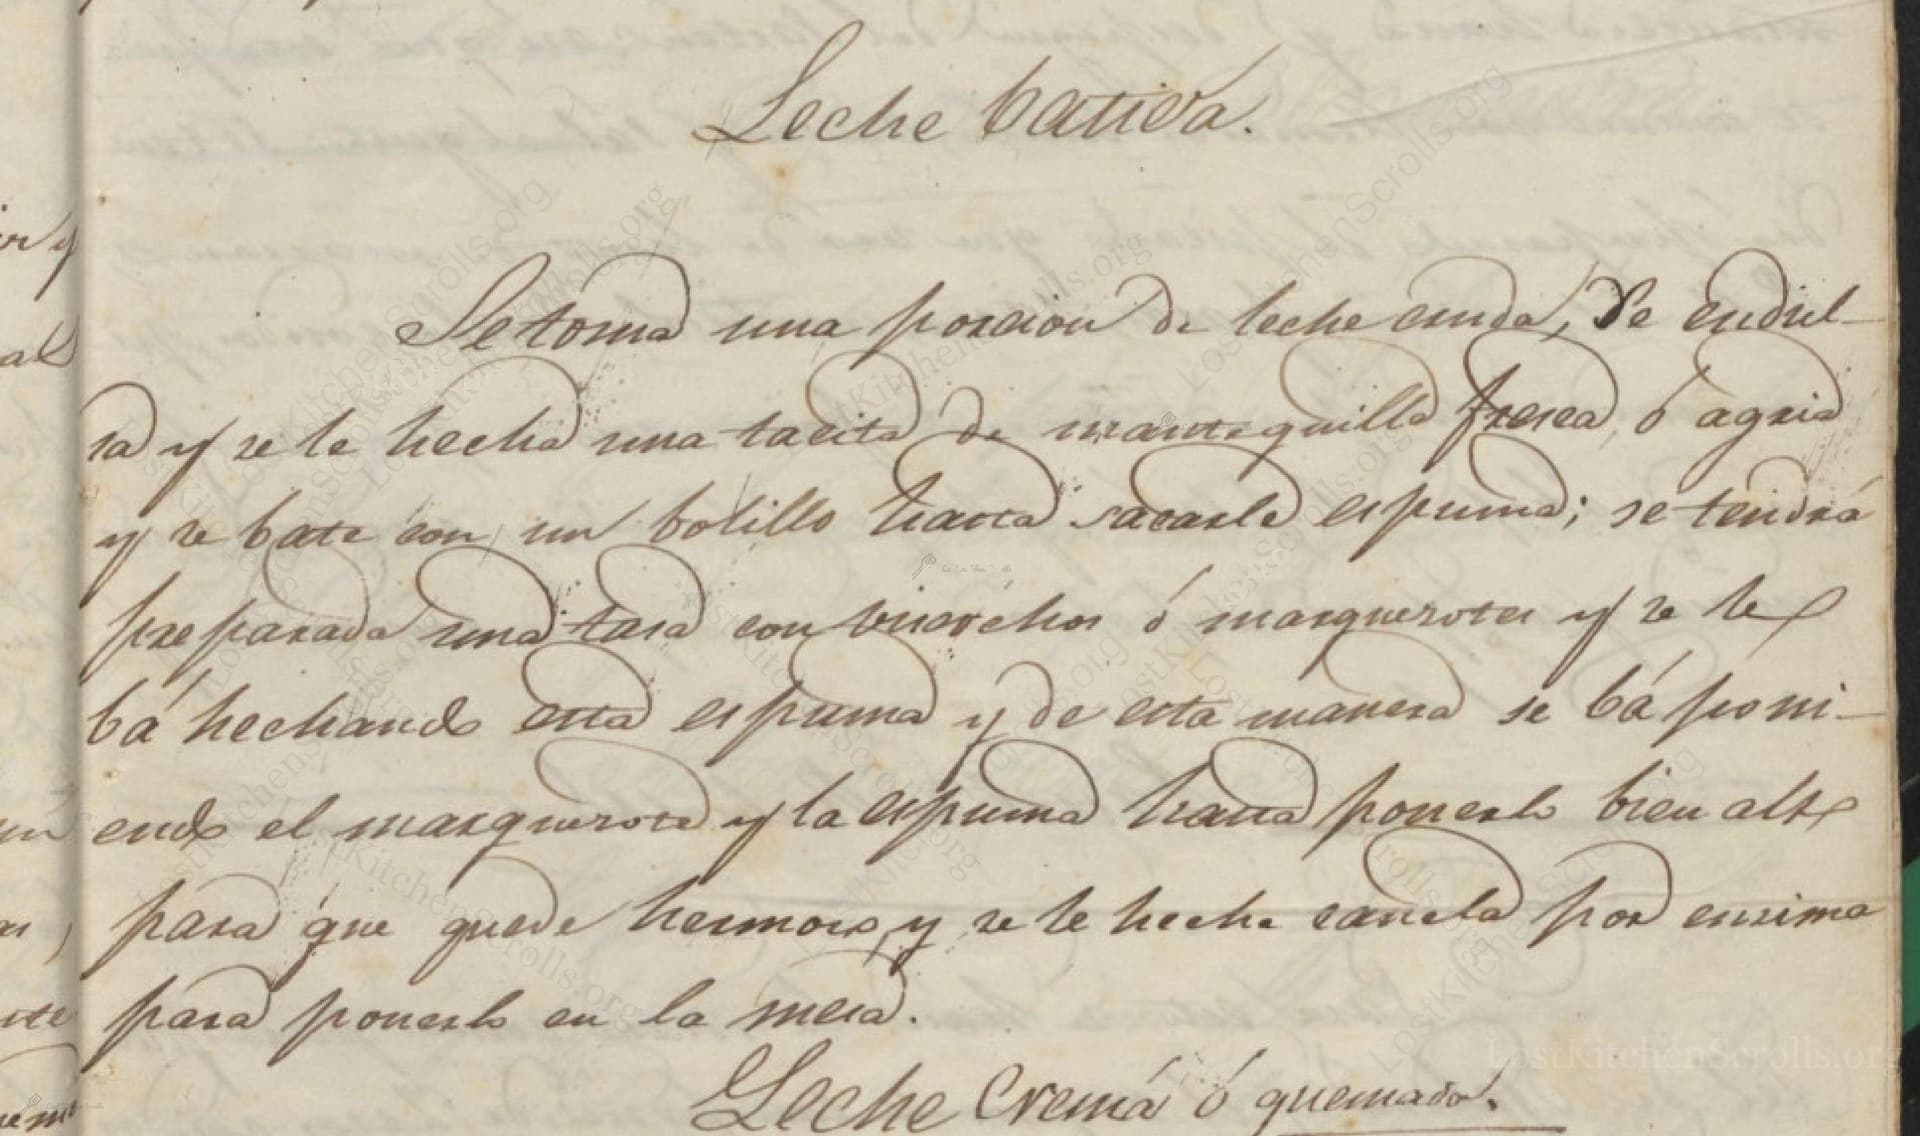 Leche batida.
Se toma una porcion de leche cruda, se endul-
sa y se le hecha una tacita de mantequilla fresca, ó agria
y se bate con un bolillo hasta sacarle espuma; se tendrá
preparada una tasa con biscochos ó marquerotes y se le
bá hechando esta espuma y de esta manera se bá poni-
endo el marquerote y la espuma hasta ponerlo bien alto
para que quede hermoso, y se le heche canela por ensima
para ponerlo en la mesa.
Leche Crema ó quemada.
LostKitchenScrolls.org